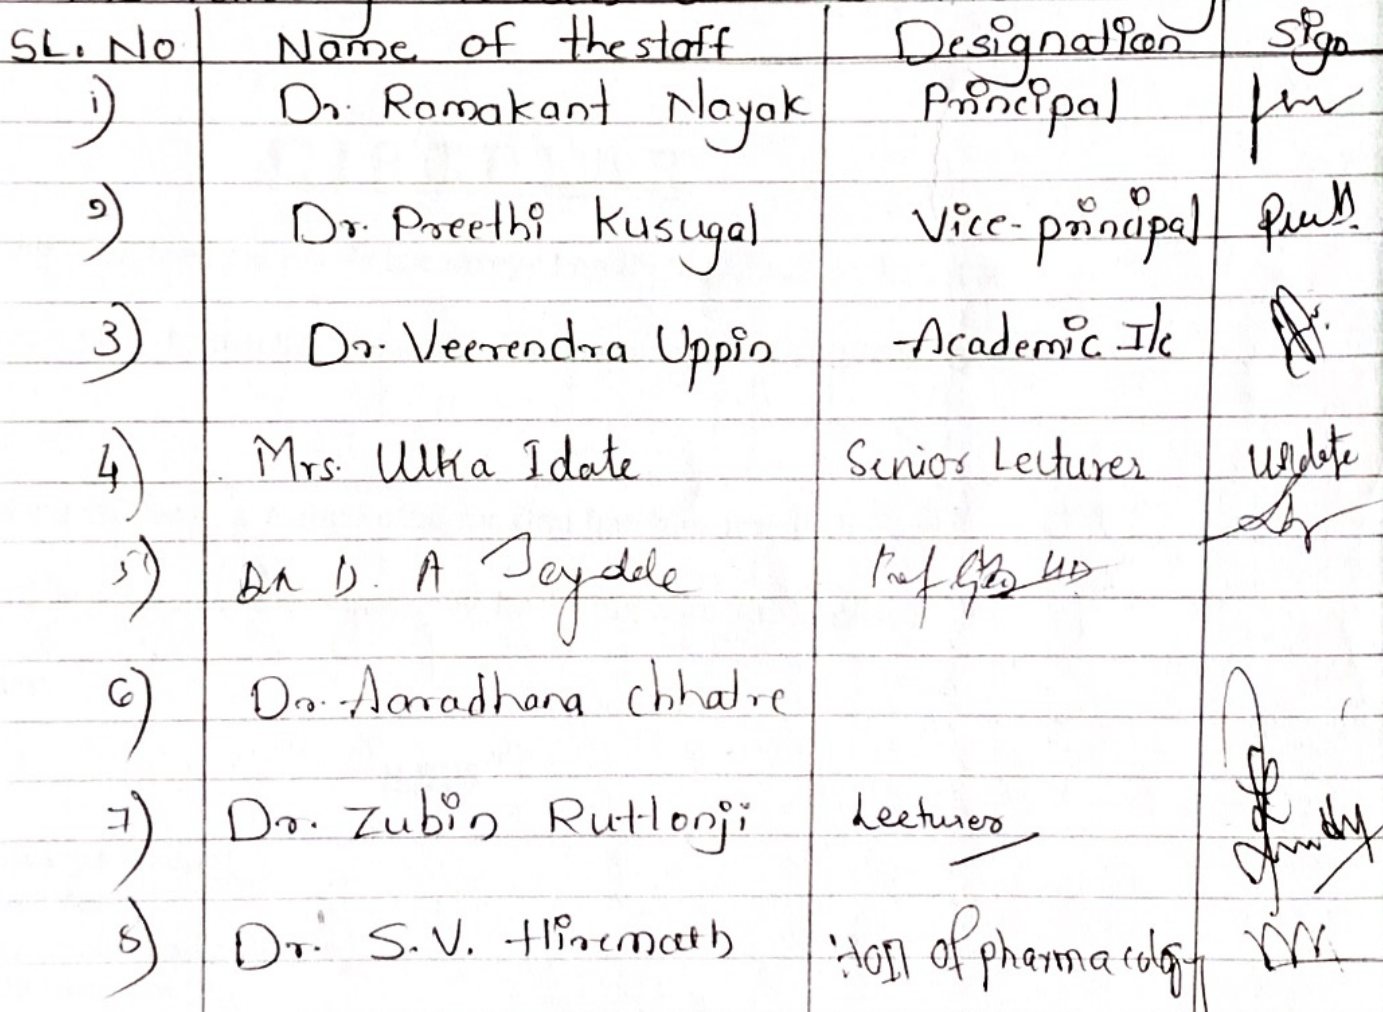 SL. No Name of the staff Designation Sign
1) Dr. Ramakant Nayak Principal
2) Dr. Preethi Kusugal Vice-principal
3) Dr. Veerendra Uppin Academic I/c
4) Mrs. Ulka Idate Senior Lecturer UIdate
5) DR D. A Prof
6) Dr. Aaradhana Chhatre
7) Dr. Zubin Ruttonji Lecturer
8) Dr. S.V. Hiremath HOD of pharmacology